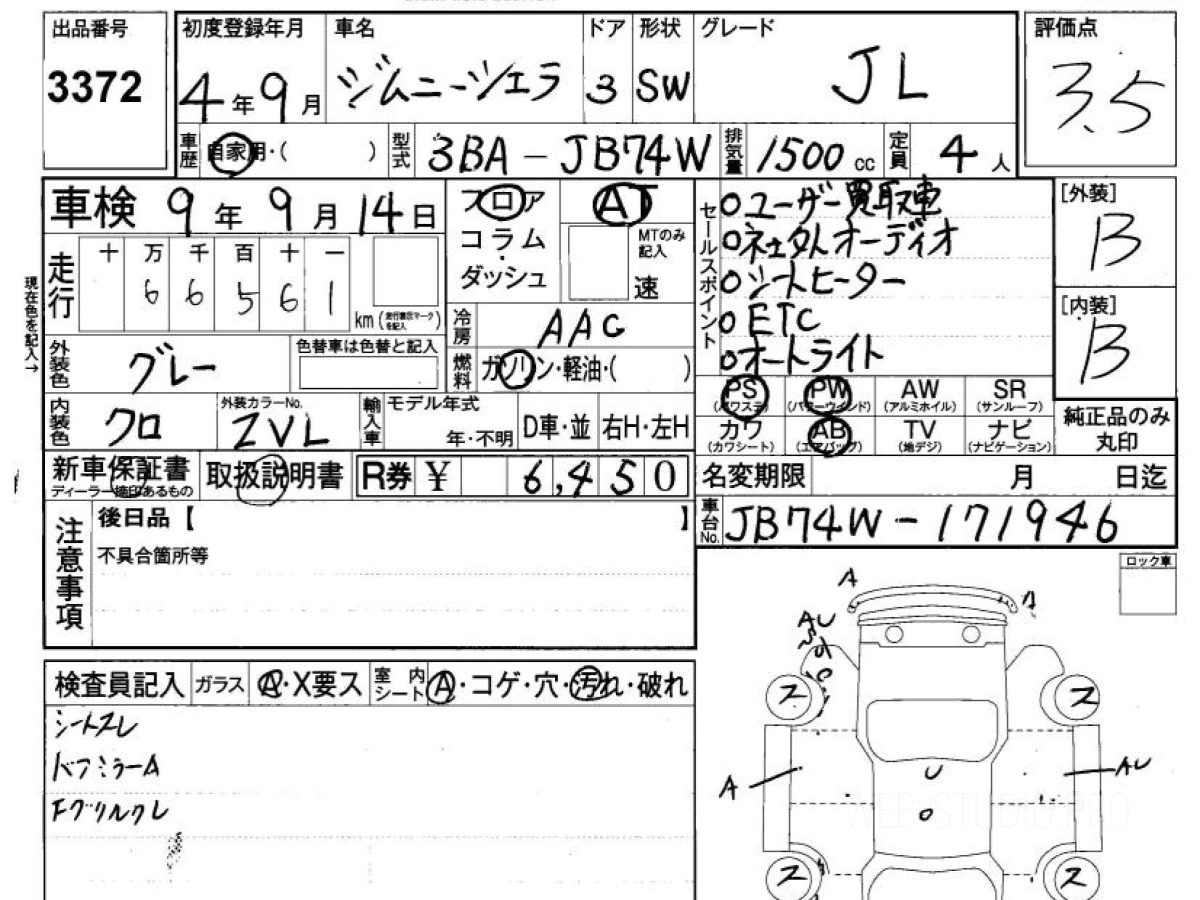 出品番号
3372
初度登録年月
4年9月
車名
ジムニーシエラ
ドア
3
形状
SW
グレード
JL
評価点
3.5
車歴
自家用・( )
型式
3BA-JB74W
排気量
1500cc
定員
4人
車検 9年9月14日
走行
十 万 千 百 十 一
6 6 5 6 1
km(走行表示マークを記入)
現在色を記入→
外装色
グレー
色替車は色替と記入
内装色
クロ
外装カラーNo.
ZVL
フロア
コラム
・
ダッシュ
AT
MTのみ記入
速
冷房
AAC
燃料
ガソリン・軽油・( )
輸入車
モデル年式
年・不明
D車・並
右H・左H
セールスポイント
○ユーザー買取車
○ネェタトオーディオ
○シートヒーター
○ETC
○オートライト
[外装]
B
[内装]
B
PS
(パワステ)
PW
(パワーウインド)
AW
(アルミホイル)
SR
(サンルーフ)
カワ
(カワシート)
AB
(エアバッグ)
TV
(地デジ)
ナビ
(ナビゲーション)
純正品のみ
丸印
新車保証書
ディーラー捺印あるもの
取扱説明書
R券 ¥ 6,450
名変期限 月 日迄
車台No.
JB74W-171946
注意事項
後日品【 】
不具合箇所等
ロック車
検査員記入
ガラス
A・X要ス
室内シート
A・コゲ・穴・汚れ・破れ
シートスレ
バフミラーA
Fグリルクレ
A
A
AU
ス
ス
A
AU
U
ス
ス
WEB-STUDIO.PRO